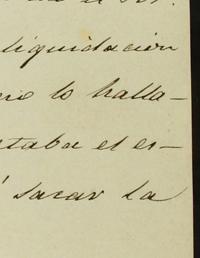 liquidación
lo halla-
taba el es-
sacar la